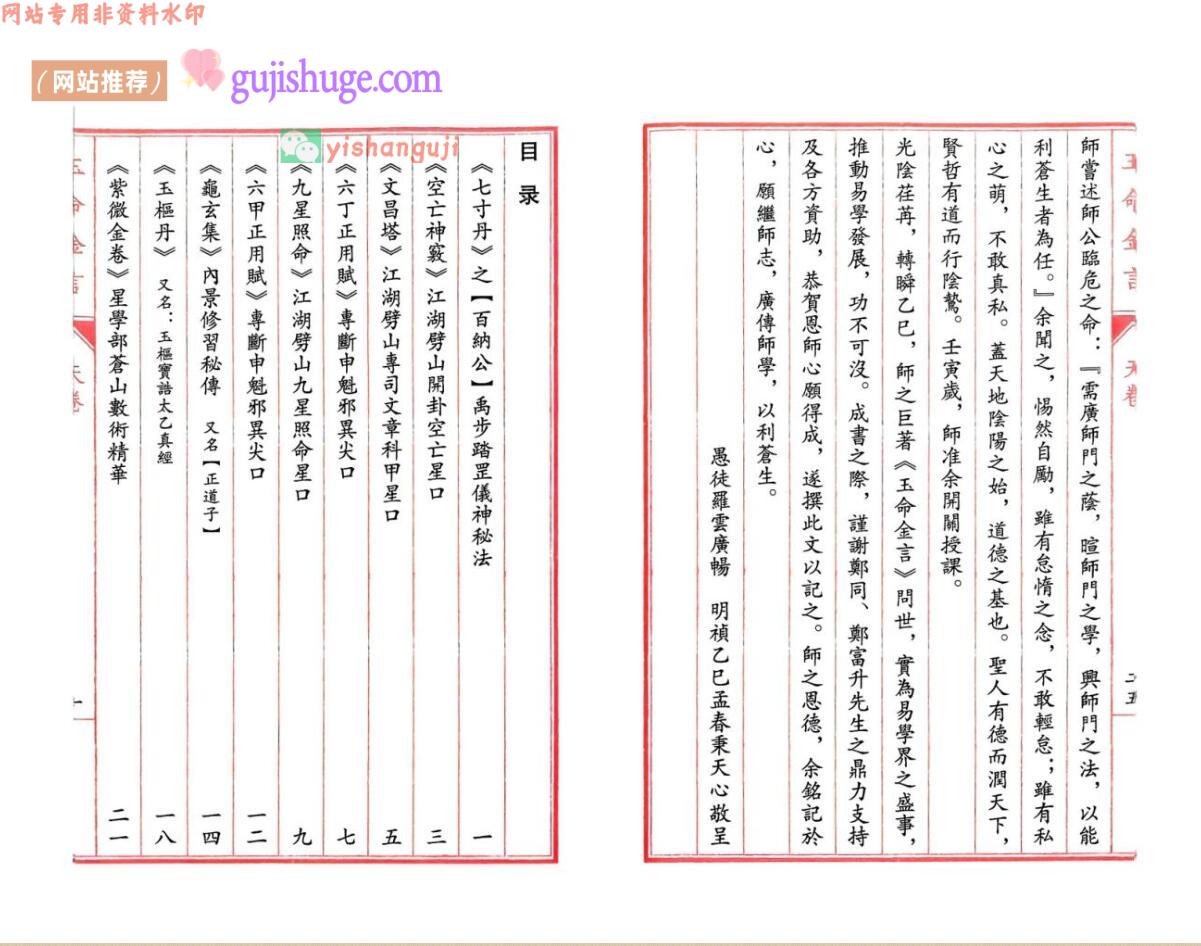 网站专用非资料水印
（网站推荐）
gujishuge.com
yishanguji
玉命金言
天卷
師嘗述師公臨危之命：『需廣師門之蔭，暄師門之學，興師門之法，以能
利蒼生者為任。』余聞之，惕然自勵，雖有怠惰之念，不敢輕怠；雖有私
心之萌，不敢真私。蓋天地陰陽之始，道德之基也。聖人有德而潤天下，
賢哲有道而行陰騭。壬寅歲，師准余開關授課。
光陰荏苒，轉瞬乙巳，師之巨著《玉命金言》問世，實為易學界之盛事，
推動易學發展，功不可沒。成書之際，謹謝鄭同、鄭富升先生之鼎力支持
及各方資助，恭賀恩師心願得成，遂撰此文以記之。師之恩德，余銘記於
心，願繼師志，廣傳師學，以利蒼生。
愚徒羅雲廣暢　明禎乙巳孟春秉天心敬呈
目录
《七寸丹》之【百納公】禹步踏罡儀神秘法 一
《空亡神竅》江湖劈山開卦空亡星口 三
《文昌塔》江湖劈山專司文章科甲星口 五
《六丁正用賦》專斷申魁邪異尖口 七
《九星照命》江湖劈山九星照命星口 九
《六甲正用賦》專斷申魁邪異尖口 一二
《龜玄集》內景修習秘傳　又名【正道子】 一四
《玉樞丹》　又名：玉樞寶誥太乙真經 一八
《紫微金卷》星學部蒼山數術精華 二一